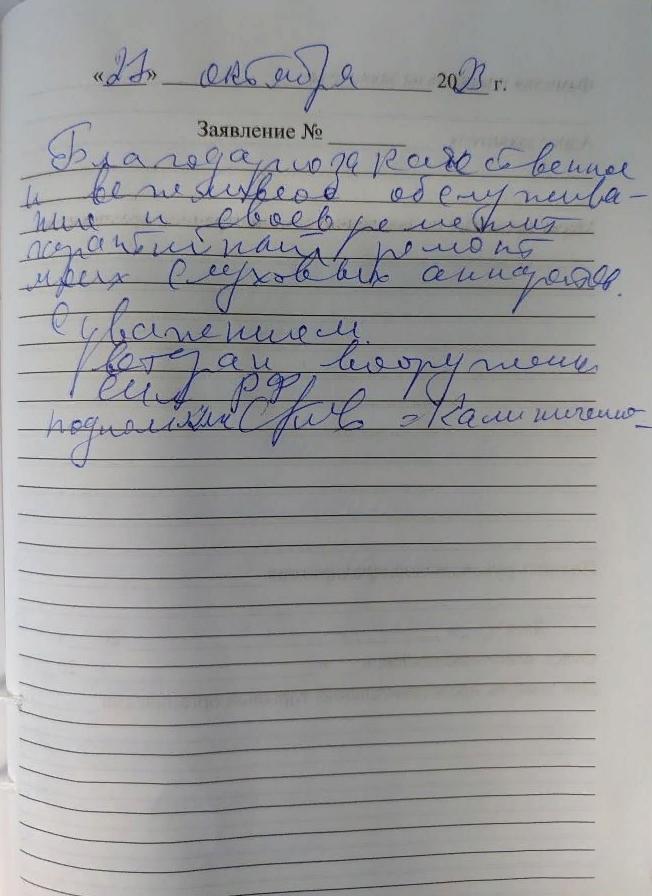 «27» октября 2023 г.
Заявление №
Благодарю за качественное
и вежливое обслужива-
ние и своевременный
гарантийный ремонт
моих слуховых аппаратов.
С уважением.
Ветеран вооружённых
сил РФ
подполковник Калиниченко